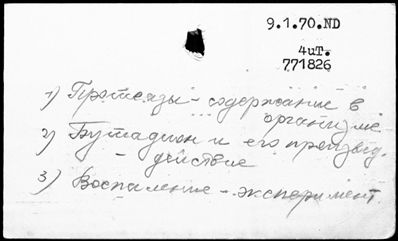 9.1.70.ND
4иТ.
771826
1) Протеазы - содержание в
организме
2) Бутадион и его производ.
- действие
3) Воспаление - эксперимент.